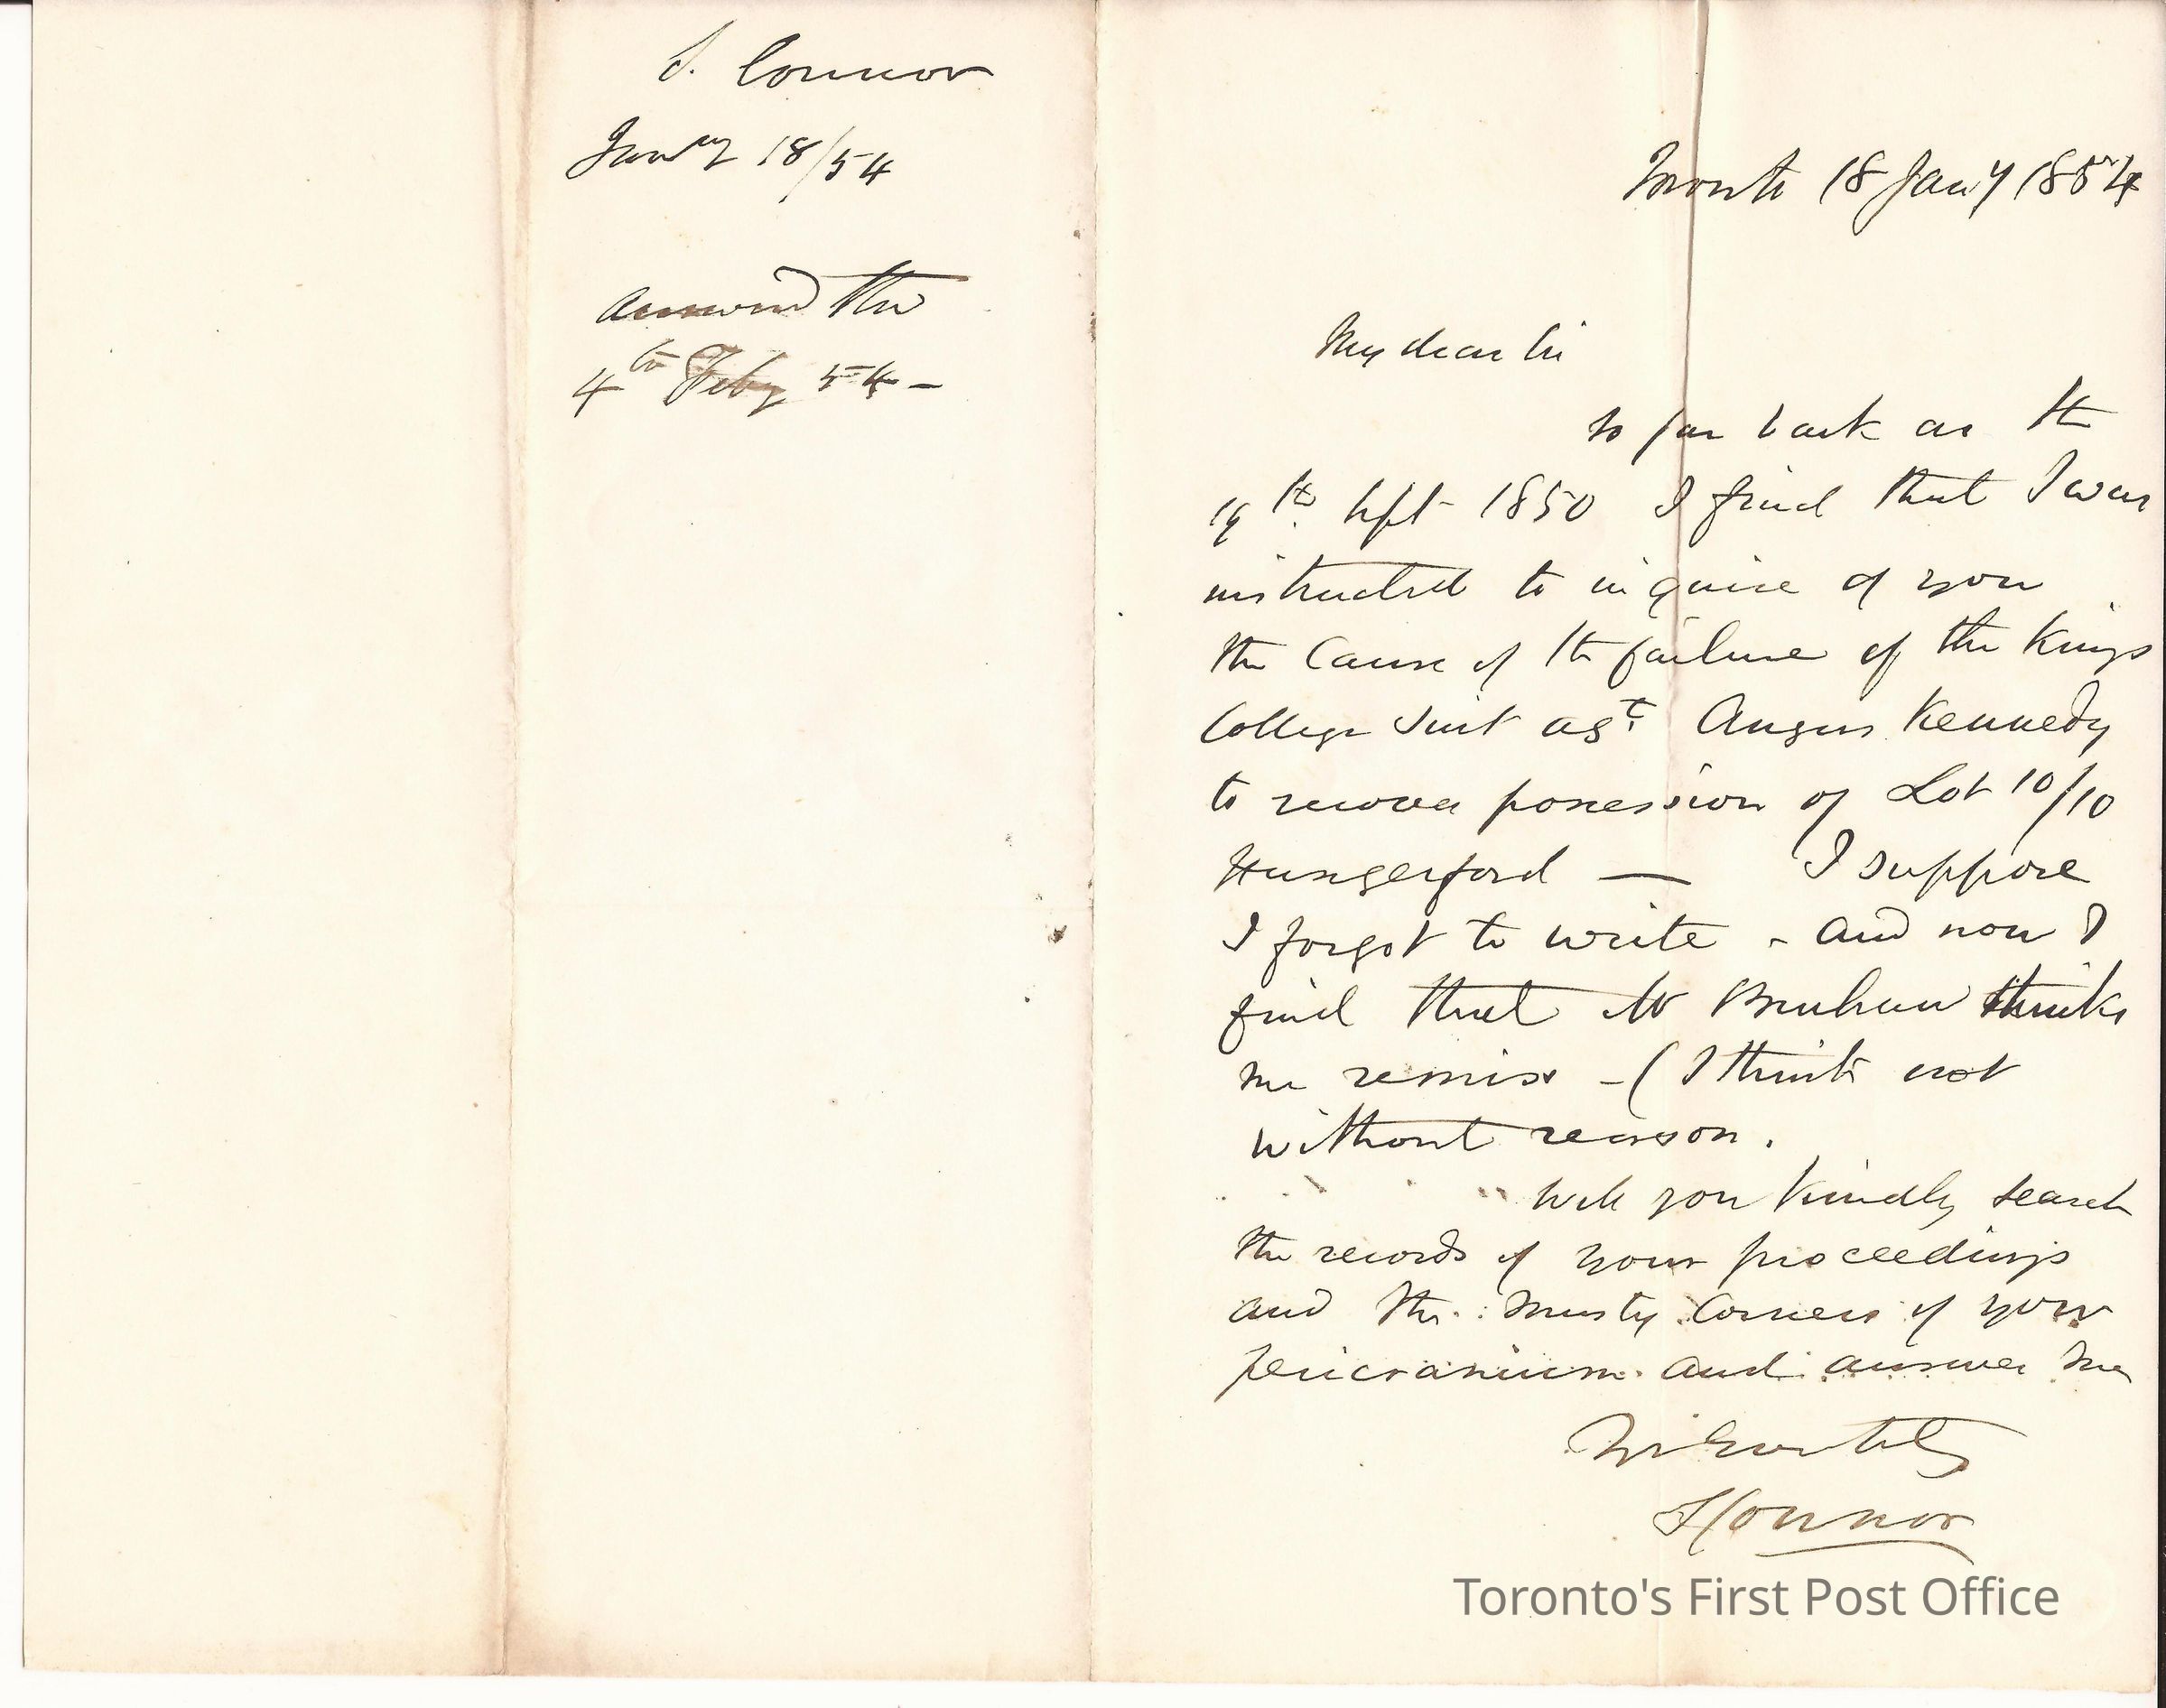 S. Connor
Jany 18/54
answerd the
4th Feby 54 –
Toronto 18 Jany 1854
My dear Sir
So far back as the
19th Sept 1850 I find that I was
instructed to inquire of you
the Cause of the failure of the Kings
College Suit agt. Angus Kennedy
to recover possession of Lot 10/10
Hungerford — I suppose
I forgot to write - and now I
find that Mr thinks
me remiss – ( I think not
without reason .
Will you kindly search
the records of your proceedings
and the musty Corners of your
pericranium and answer me
SConnor
Toronto's First Post Office